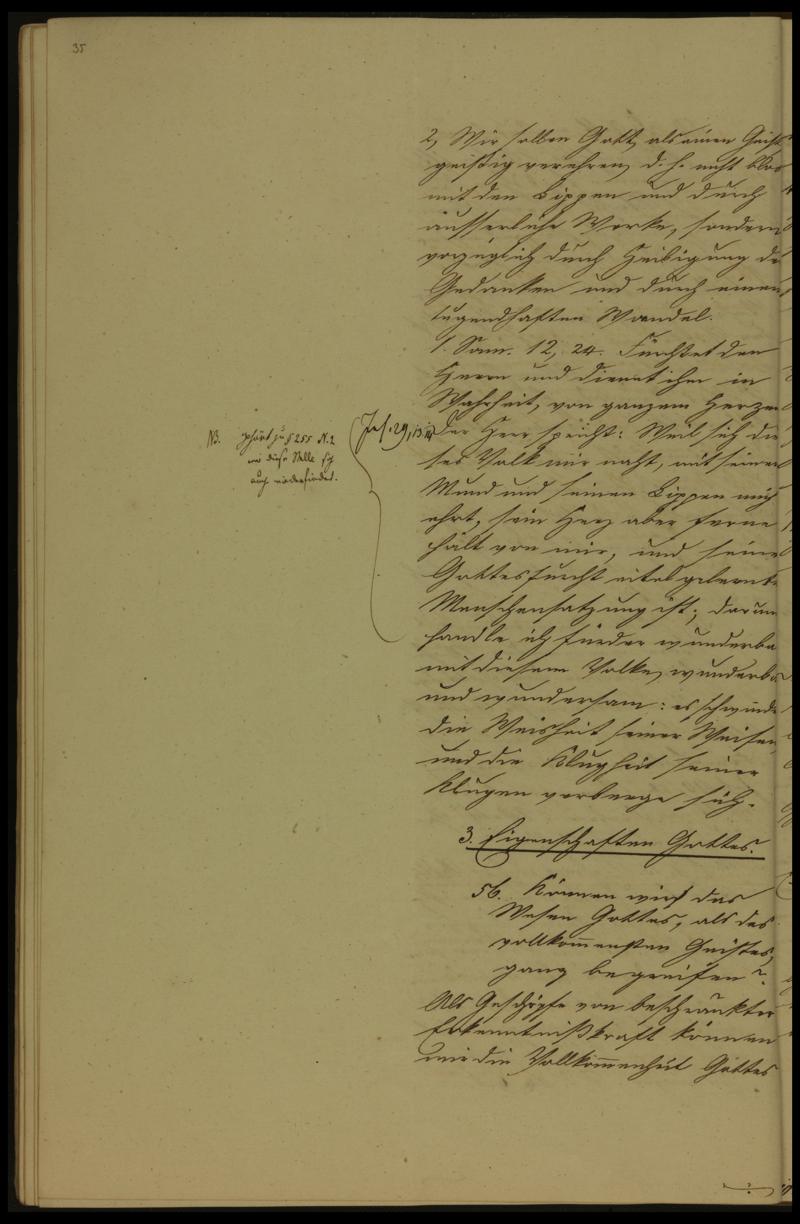 35
2, Wir sollen Gott, als einen Geist
geistig verehren, d. h. nicht blos
mit den Lippen und durch
äusserliche Werke, sondern
vorzüglich durch Heiligung de
Gedanken und durch einen
tugendhaften Wandel.
1. Sam. 12, 24. Fürchtet den
Herrn und dienet ihm in
Wahrheit, von ganzem Herzen
NB. gehört zu § 255 N. 2
wo diese Stelle sich
auch wiederfindet.
Jes. 29, 13. 14. Der Herr spricht: Weil sich die
ses Volk mir naht, mit seinem
Mund und seinen Lippen mich
ehrt, sein Herz aber ferne
hält von mir, und seine
Gottesfurcht eitel gelernte
Menschensatzung ist; darum
handle ich fürder wunderba
mit diesem Volke, wunderba
und wundersam: es schwinde
die Weisheit seiner Weisen,
und die Klugheit seiner
Klugen verberge sich.
3. Eigenschaften Gottes.
56. Können wir das
Wesen Gottes, als des
vollkommensten Geistes,
ganz begreifen?
Als Geschöpfe von beschränkter
Erkenntnißkraft können
wir die Vollkommenheit Gottes